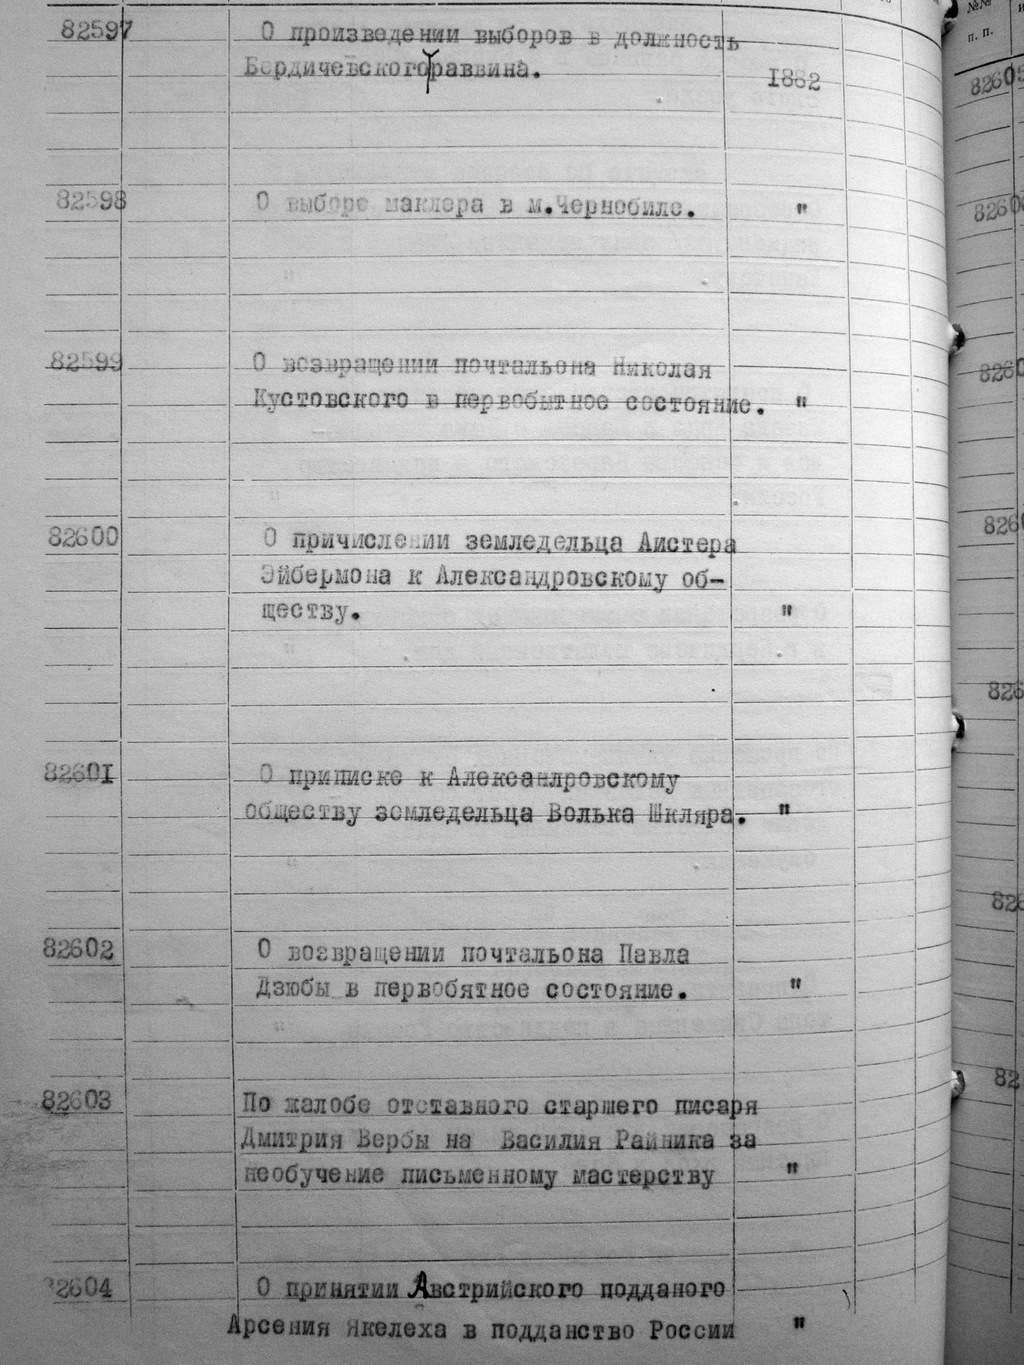 82597 О произведении выборов в должность
Бердичевского раввина. 1882
82598 О выборе маклера в м.Чернобиле. "
82599 О возвращении почтальона Николая
Кустовского в первобытное состояние. "
82600 О причислении земледельца Аистера
Эйбермона к Александровскому об-
ществу. "
82601 О приписке к Алексанлровскому
обществу земледельца Волька Шкляра. "
82602 О возвращении почтальона Павла
Дзюбы в первобятное состояние. "
82603 По жалобе отставного старшего писаря
Дмитрия Вербы на Василия Райника за
необучение письменному мастерству "
82604 О принятии Австрийского подданого
Арсения Якелеха в подданство России "
№№
п. п.